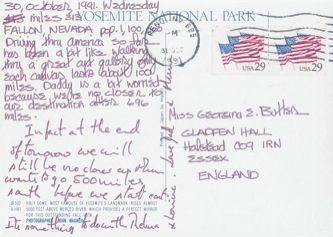 YOSEMITE NATIONAL PARK
30, October, 1991. Wednesday
miles
FALLON, NEVADA pop. 1,100
Driving thru America so far
has been a bit like walking
thru a great art gallery only
each canvas lasts about 100
miles. Daddy is a bit worried
because we're no closer to
our destination after 696
miles.
In fact at the end
of tomorrow we will
still be no closer
wants to go 500 miles
south before we start east.
It's something to do with
USA 29
USA 29
Miss Georgina E. Butten
GLADFEN HALL
Halstead CO9 1RN
Essex
ENGLAND
HALF DOME, MOST FAMOUS OF YOSEMITE'S LANDMARK, RISES ALMOST
5000 FEET ABOVE MERCED RIVER, WHICH PROVIDES A PERFECT MIRROR
FOR THIS OUTSTANDING FALL VIEW.